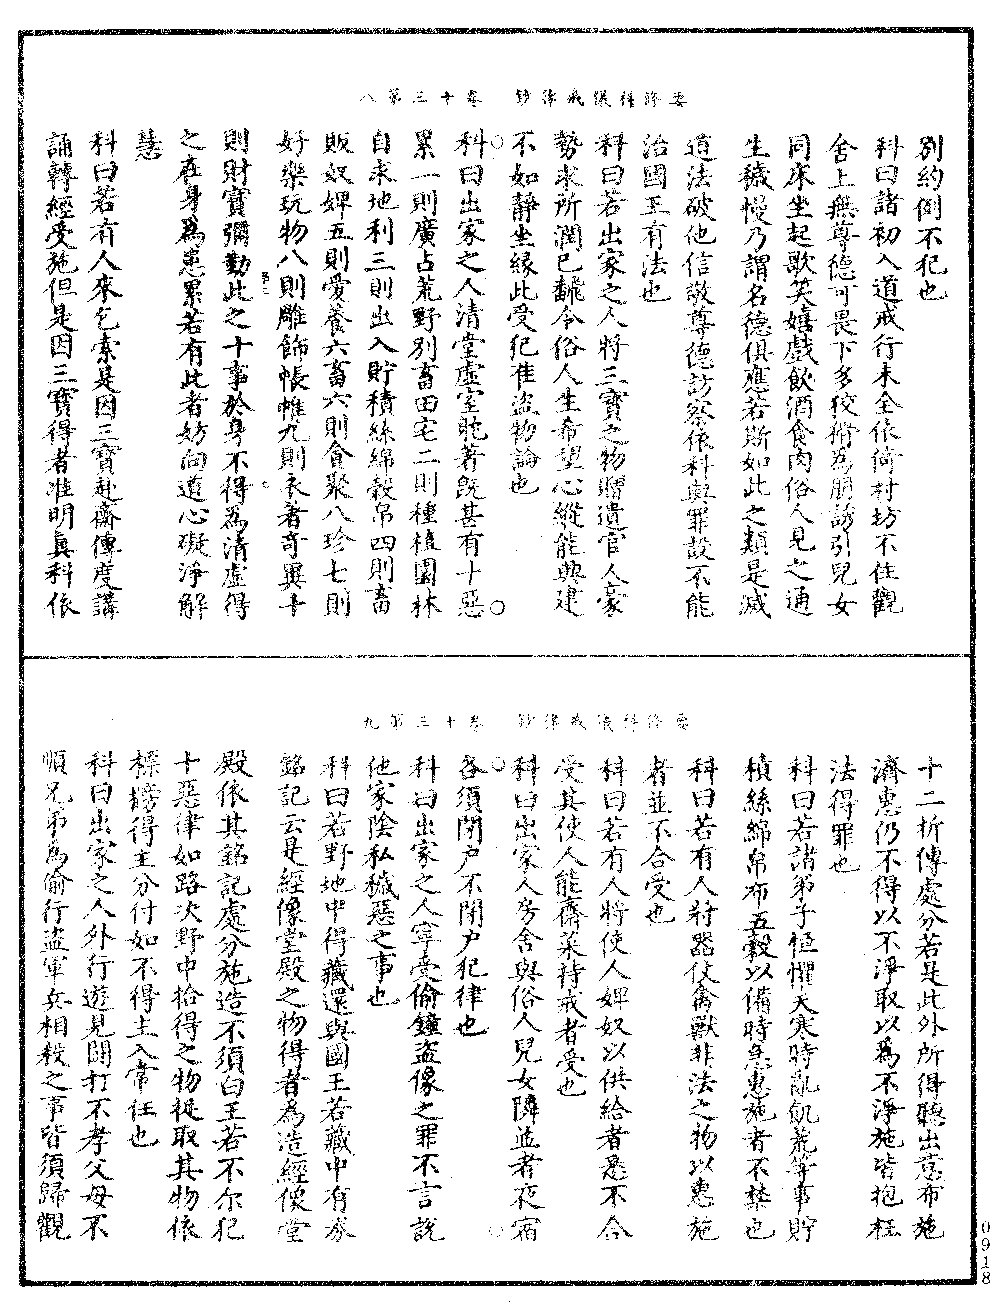 要修科儀戒律鈔　卷十三第八
別約倒不犯也
科曰諸初入道戒行未全依倚村坊不住觀
舍上無尊德可畏下多狡猾為朋誘引兒女
同床坐起歌笑嬉戲飲酒食肉俗人見之通
生穢慢乃謂名德俱應若斯如此之類是滅
道法破他信敬尊德訪察依科與罪設不能
治國王有法也
科曰若出家之人將三寶之物贈遺官人豪
勢求所潤已飜令俗人生希望心縱能興建
不如靜坐緣此受犯准盜物論也
科曰出家之人清堂虛室貪著既甚有十惡
累一則廣占荒野別畜田宅二則種植園林
自求地利三則出入貯積絲綿穀帛四則畜
販奴婢五則愛養六畜六則貪聚八珍七則
好樂玩物八則雕飾帳帷九則衣著奇異十
則財寶彌勤此之十事於身不得為清虛得
之在身為患累若有此者妨向道心礙淨解
慧
科曰若有人來乞索是因三寶赴齋傳度講
誦轉經受施但是因三寶得者准明真科依
要修科儀戒律鈔　卷十三第九
十二折傳處分若是此外所得聽出慈布施
濟惠仍不得以不淨取以為不淨施皆抱枉
法得罪也
科曰若諸弟子恒懼天寒時亂飢荒等事貯
積絲綿帛布五穀以備時急惠施者不禁也
科曰若有人將器仗禽獸非法之物以惠施
者並不合受也
科曰若有人將使人婢奴以供給者悉不合
受其使人能齋菜持戒者受也
科曰出家人房舍與俗人兒女隣並者夜宿
各須閉戶不閉戶犯律也
科曰出家之人寧受偷鐘盜像之罪不言說
他家陰私穢惡之事也
科曰若野地中得藏還與國王若藏中有券
銘記云是經像堂殿之物得者為造經像堂
殿依其銘記處分施造不須白王若不尔犯
十惡律如路次野中拾得之物從取其物依
標牓得主分付如不得主入常住也
科曰出家之人外行遊見鬪打不孝父母不
順兄弟為偷行盜軍兵相殺之事皆須歸觀
0918